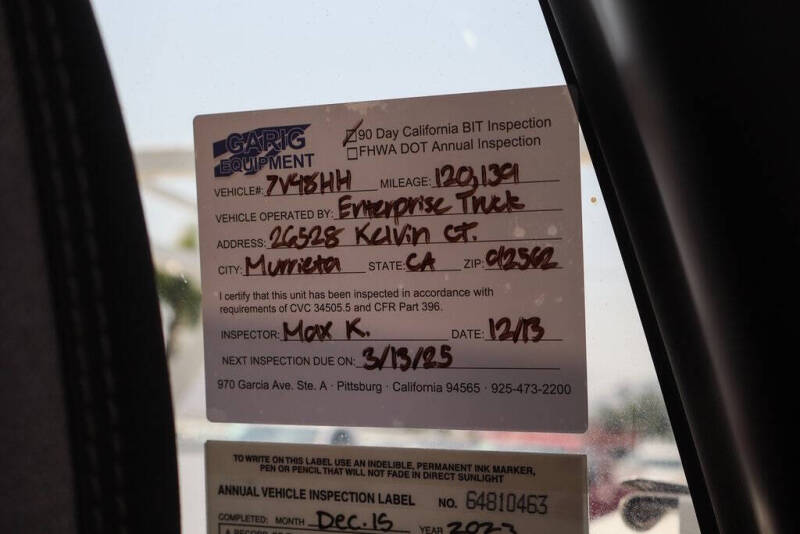 GARIG
EQUIPMENT
90 Day California BIT Inspection
FHWA DOT Annual Inspection
VEHICLE#: 7V98HH MILEAGE: 120,139
VEHICLE OPERATED BY: Enterprise Truck
ADDRESS: 26528 Kelvin Ct.
CITY: Murrieta STATE: CA ZIP: 92562
I certify that this unit has been inspected in accordance with
requirements of CVC 34505.5 and CFR Part 396.
INSPECTOR: Max K. DATE: 12/13
NEXT INSPECTION DUE ON: 3/13/25
970 Garcia Ave. Ste. A · Pittsburg · California 94565 · 925-473-2200
TO WRITE ON THIS LABEL USE AN INDELIBLE, PERMANENT INK MARKER,
PEN OR PENCIL THAT WILL NOT FADE IN DIRECT SUNLIGHT
ANNUAL VEHICLE INSPECTION LABEL NO. 64810463
COMPLETED: MONTH Dec. 15 YEAR 2023